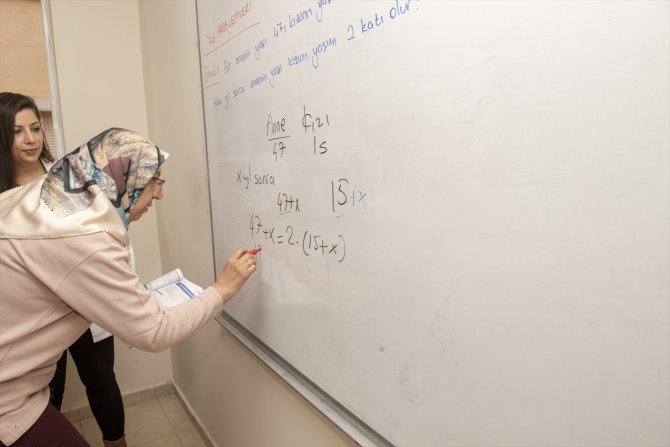 YAŞ PROBLEMLERİ
Örnek: Bir annenin yaşı 47, kızının yaşı
Kaç yıl sonra annenin yaşı kızının yaşının 2 katı olur?
Anne Kızı
47 15
x yıl sonra
47+x 15+x
47+x=2.(15+x)